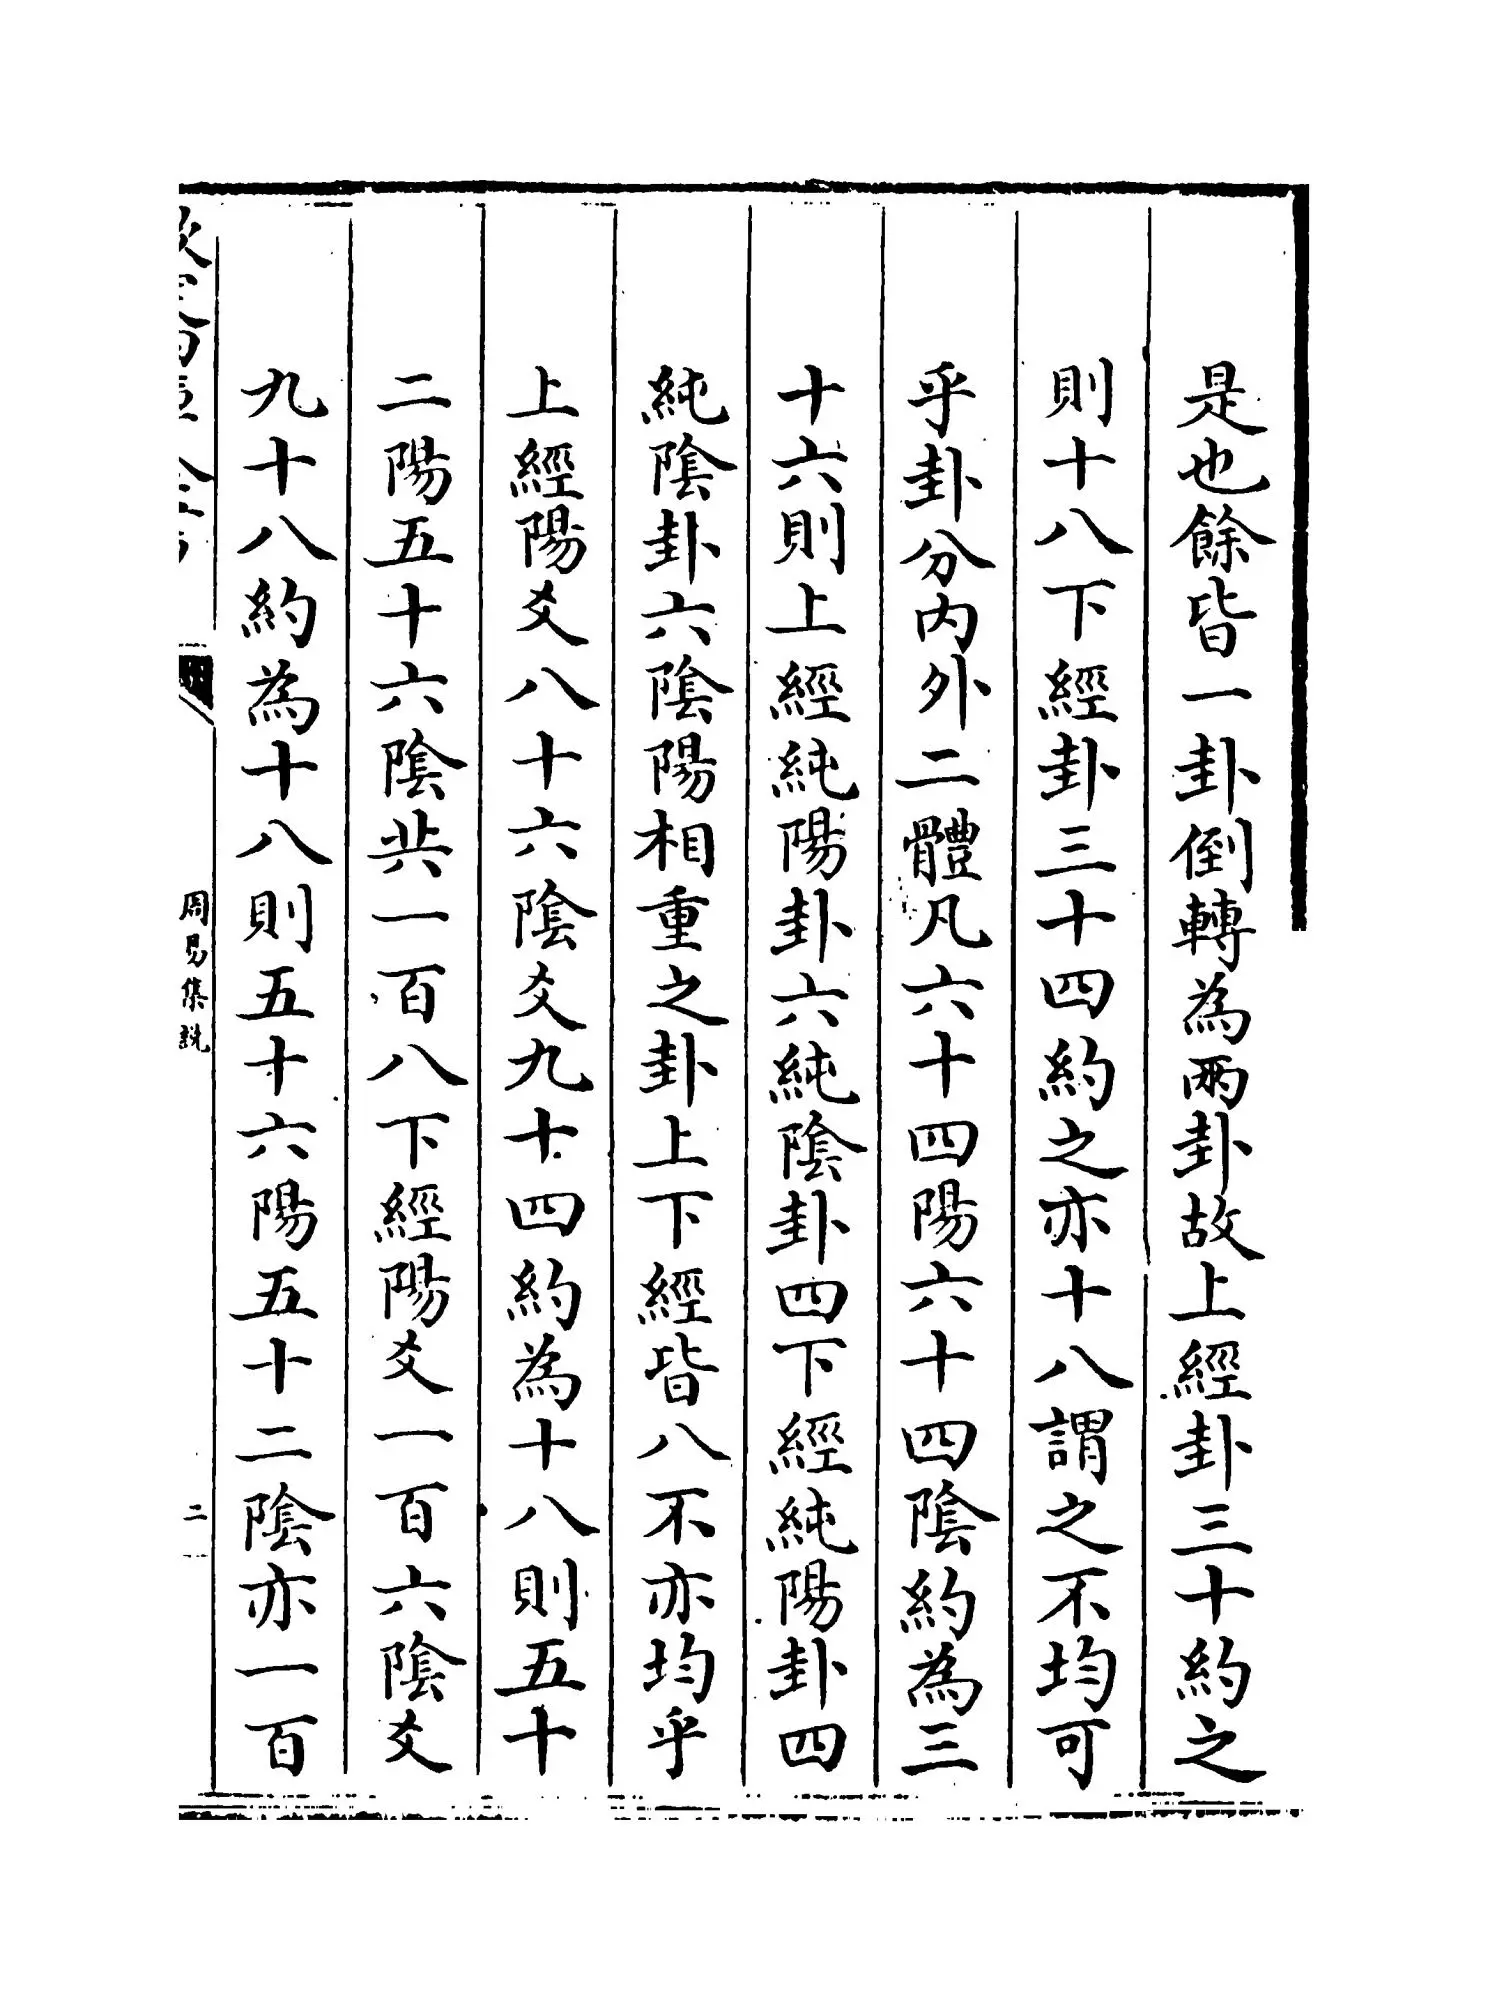 是也餘皆一卦倒轉為兩卦故上經卦三十約之
則十八下經卦三十四約之亦十八謂之不均可
乎卦分内外二體凡六十四陽六十四陰約為三
十六則上經純陽卦六純陰卦四下經純陽卦四
純陰卦六陰陽相重之卦上下經皆八不亦均乎
上經陽爻八十六陰爻九十四約為十八則五十
二陽五十六陰共一百八下經陽爻一百六陰爻
九十八約為十八則五十六陽五十二陰亦一百
周易集説
二